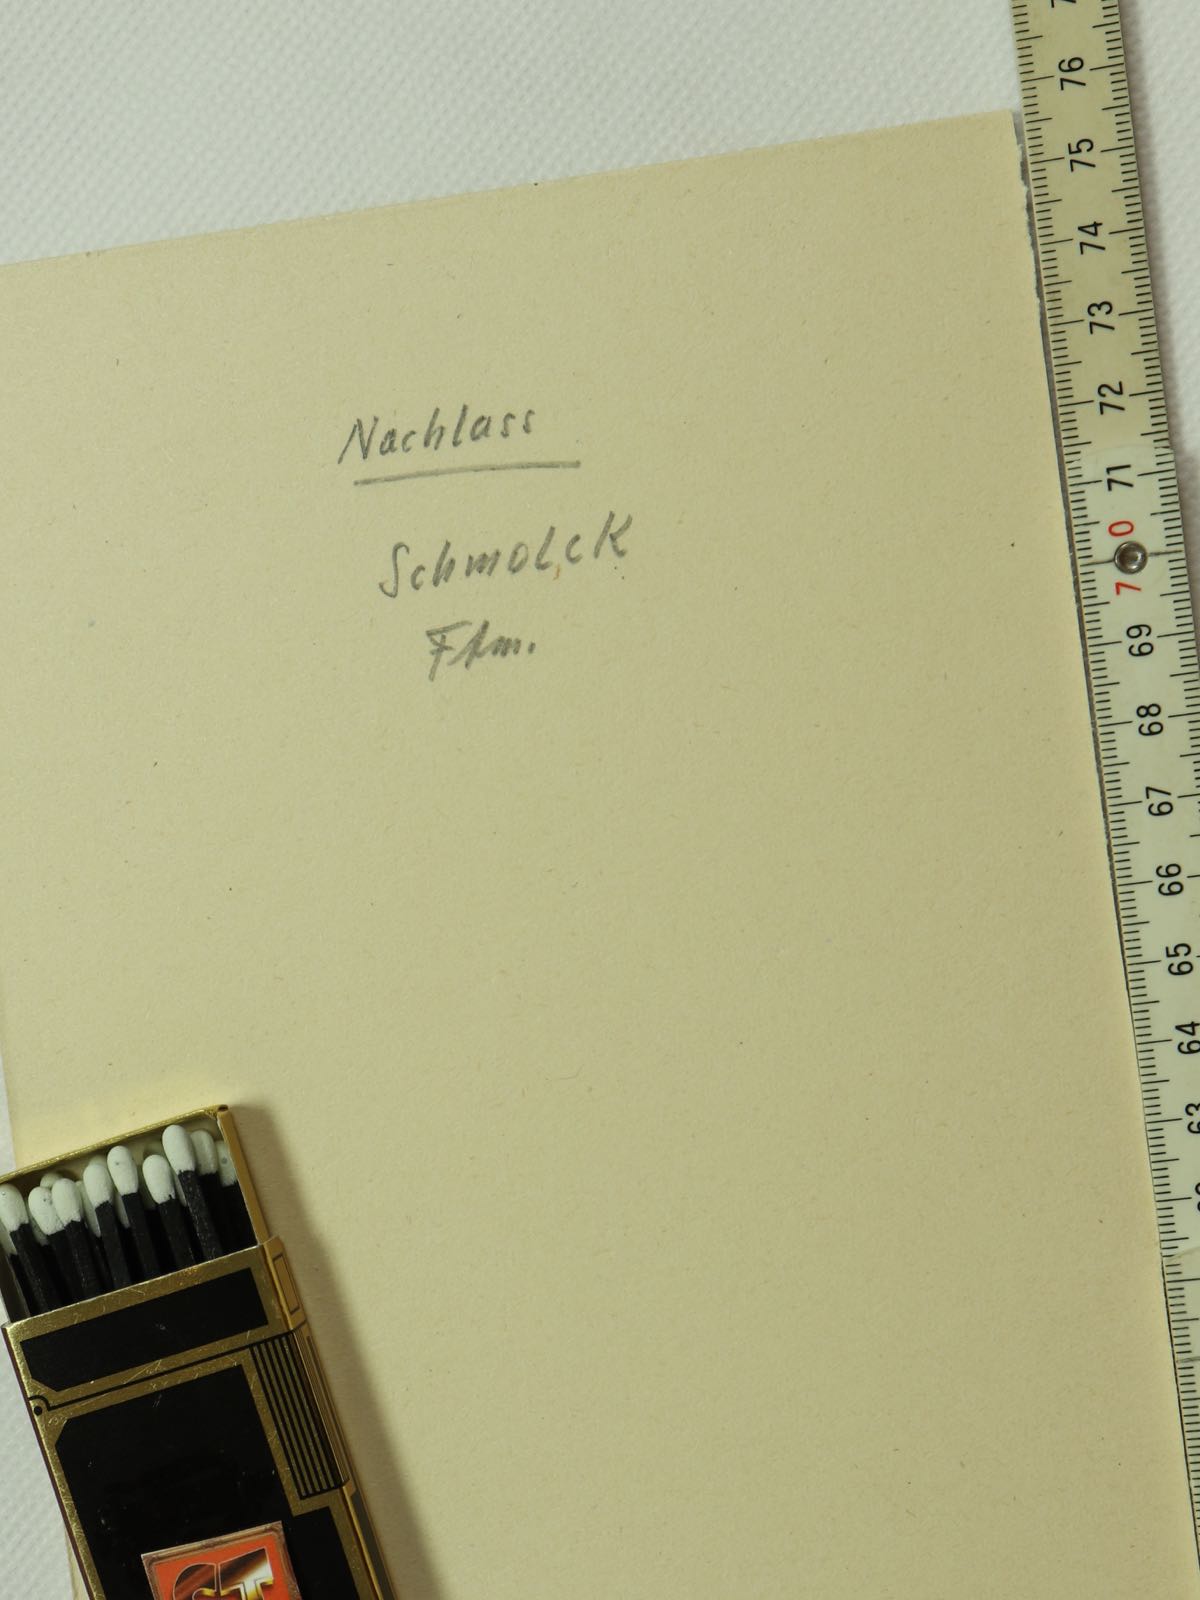 Nachlass
Schmolck
Ffm.
76
75
74
73
72
71
70
69
68
67
66
65
64
63
ST